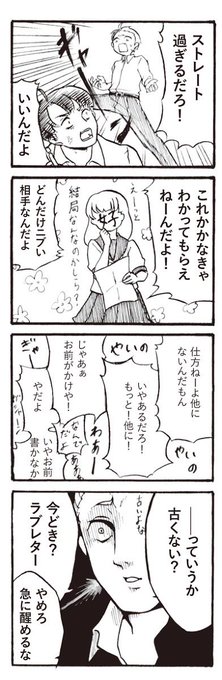 ストレート
過ぎるだろ！
いいんだよ
これくらい
かかなきゃ
わかってもらえ
ねーんだよ！
えーと
好
結局なんなのかしら？
どんだけニブい
相手なんだよ
仕方ねーよ他に
ないんだもん
やいの
いやあるだろ！
もっと！他に！
やいの
じゃあぁ
お前がかけや！
わぁー
なんで
だよ
いやお前
書かなか
やだよ
古いよな
――っていうか
古くない？
今どき？
ラブレター
やめろ
急に醒めるな